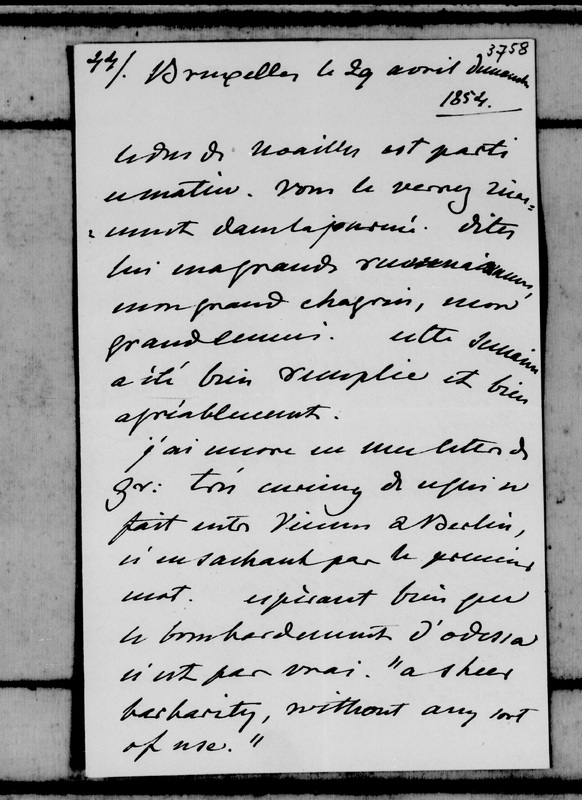 3758
44/. Bruxelles le 29 avril dimanche
1854.
le duc de Noailles est parti
ce matin. vous le verrez sûre=
=ment dans la journée. dites
lui ma grande reconnaissance,
mon grand chagrin, mon
grand ennui. cette semaine
a été bien remplie et bien
agréablement.
j'ai encore eu une lettre de
Gr: très curieux de ce qui se
fait entre Vienne & Berlin,
n'en sachant pas le premier
mot. espérant bien que
le bombardement d'odessa
n'est pas vrai. "a sheer
barbarity, without any sort
of use."